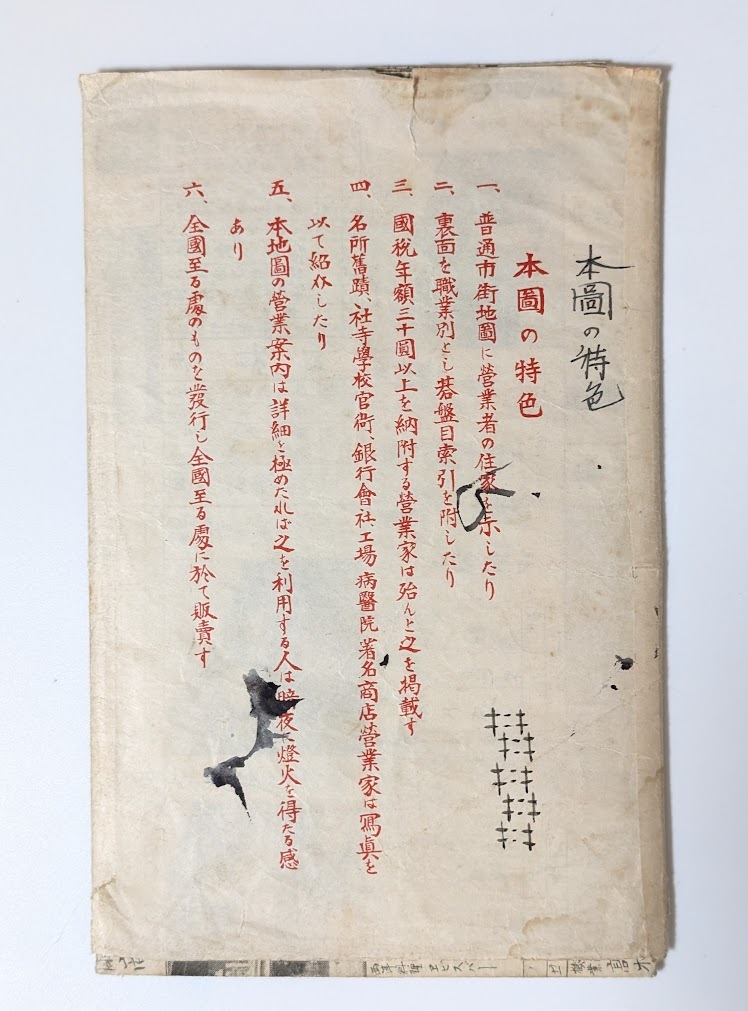 本圖の特色
本圖の特色
一、普通市街地圖に營業者の住家を示したり
二、裏面を職業別とし碁盤目索引を附したり
三、國税年額三十圓以上を納附する營業家は殆んと之を掲載す
四、名所舊蹟、社寺學校官衙、銀行會社工場病醫院著名商店營業家は寫眞を
以て紹介したり
五、本地圖の營業案内は詳細を極めたれば之を利用する人は暗夜に燈火を得たる感
あり
六、全國至る處のものを發行し全國至る處に於て販賣す